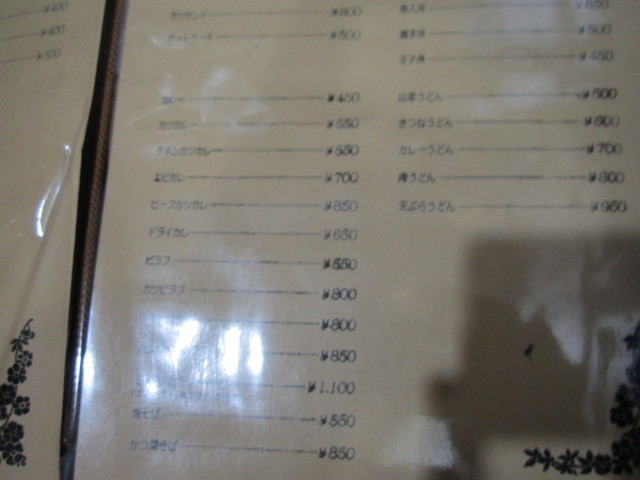 ¥400
¥400
¥500
カツサンド ¥800
ホットケーキ ¥500
カレー ¥450
カツカレー ¥550
チキンカツカレー ¥550
エビカレー ¥700
ビーフカツカレー ¥850
ドライカレー ¥650
ピラフ ¥550
カツピラフ ¥800
¥800
¥850
¥1,100
焼そば ¥550
かつ焼そば ¥850
他人丼 ¥650
親子丼 ¥500
玉子丼 ¥450
山菜うどん ¥500
きつねうどん ¥600
カレーうどん ¥700
肉うどん ¥800
天ぷらうどん ¥950